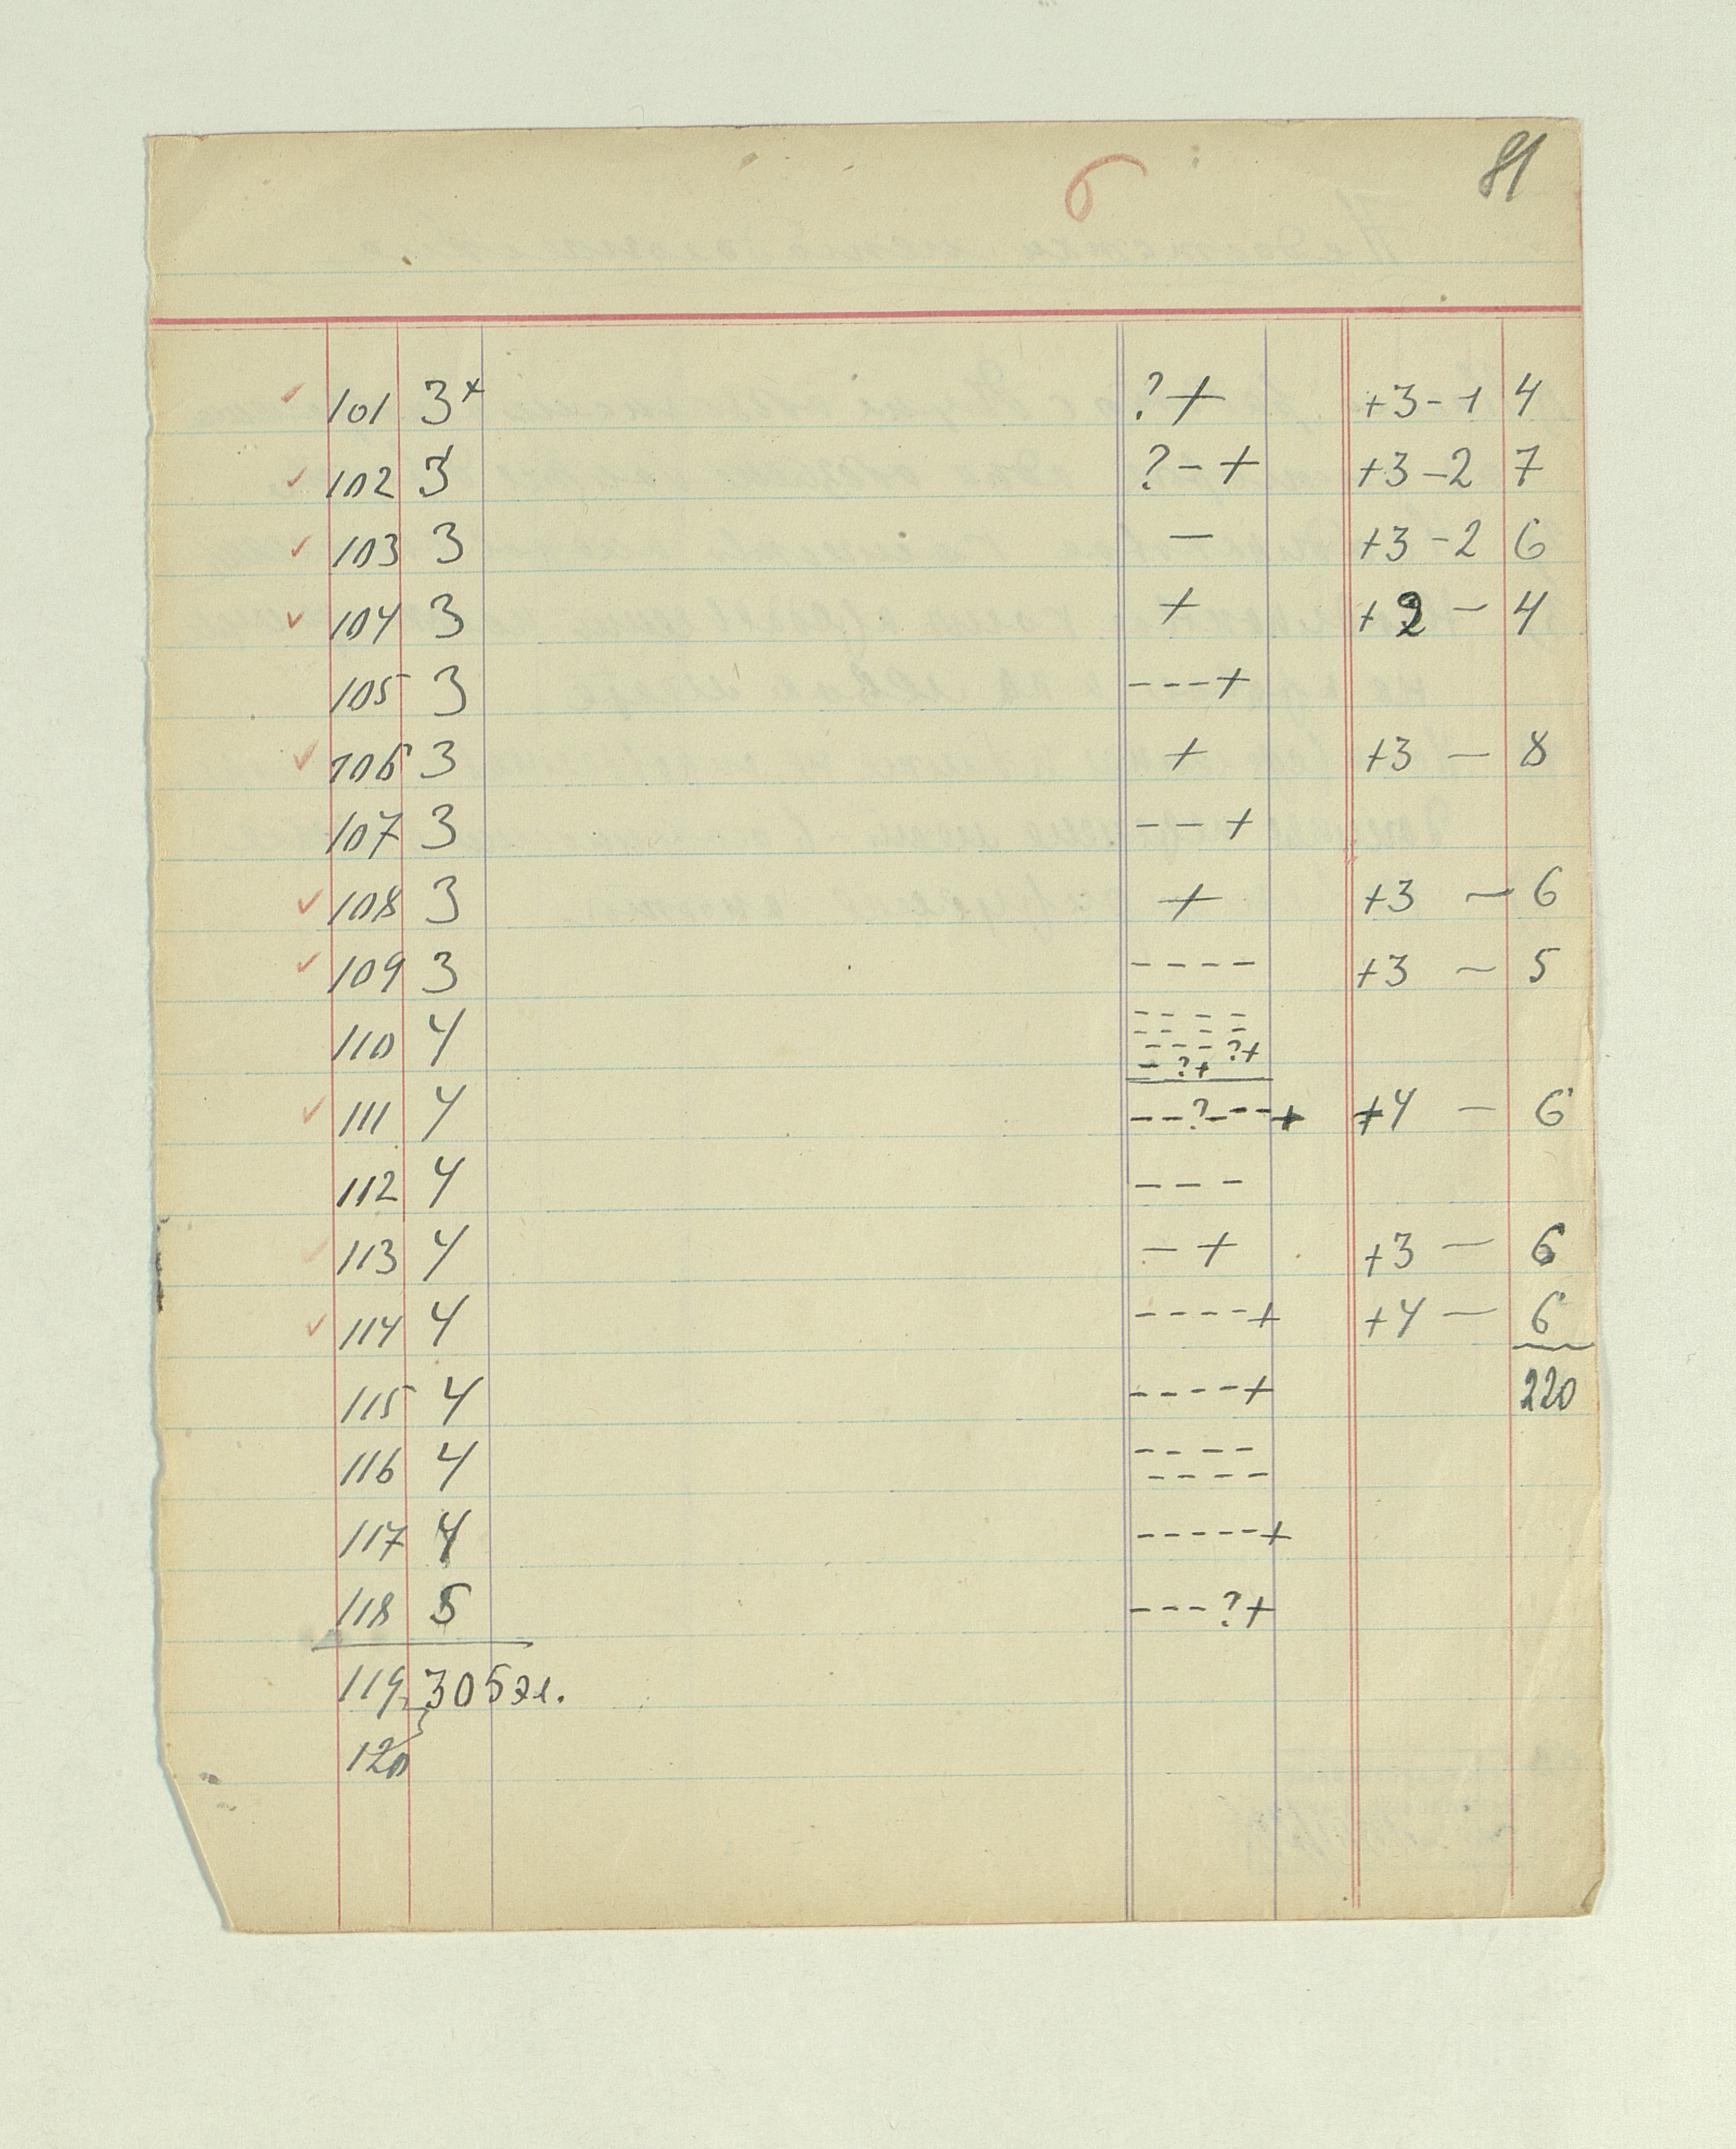 81
6
101 3× ? + +3-1 4
102 3 ? - + +3-2 7
103 3 - +3-2 6
104 3 + +2 - 4
105 3 - - - +
106 3 + +3 - 8
107 3 - - +
108 3 + +3 - 6
109 3 - - - - +3 - 5
110 4 - - - -
- - - -
- - - ? +
- ? +
111 4 - - ? - - - + +4 - 6
112 4 - - -
113 4 - + +3 - 6
114 4 - - - - + +4 - 6
115 4 - - - - + 220
116 4 - - - -
- - - -
117 4 - - - - - +
118 5 - - - ? +
119 305 эл.
120